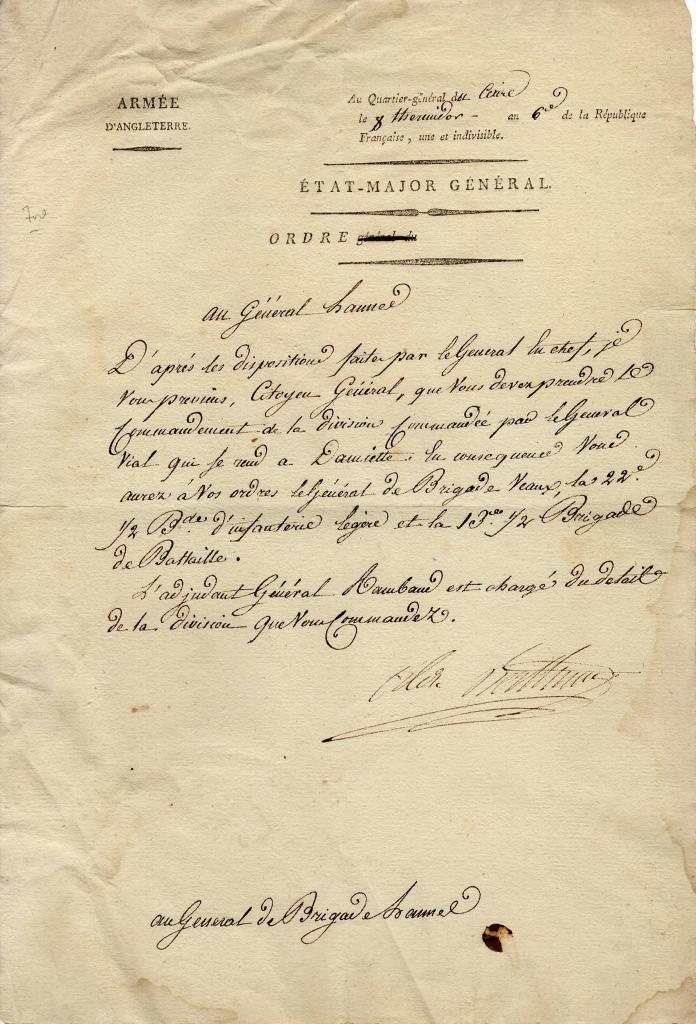 ARMÉE
D'ANGLETERRE.
Au Quartier-général du Caire
le 8 thermidor - an 6e de la République
Française, une et indivisible.
ÉTAT-MAJOR GÉNÉRAL.
ORDRE général du
au Général Lannes
D'après les dispositions faites par le Général En chef, je
Vous préviens, Citoyen Général, que Vous devez prendre le
Commandement de la division Commandée par le Général
Vial qui se rend a Damiette. En consequence Vous
aurez à Vos ordres le Général de Brigade Veaux, la 22.e
1/2 B.de d'infanterie légère et la 13.e 1/2 Brigade
de Battaille.
L'adjudant Général Rambaud est chargé du détail
de la division que Vous Commandez.
Alex. Berthier
au General de Brigade Lannes